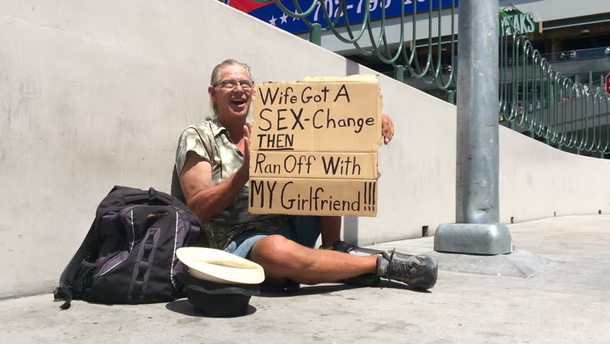 702-795
Wife Got A
SEX-Change
THEN
Ran Off With
MY Girlfriend!!!